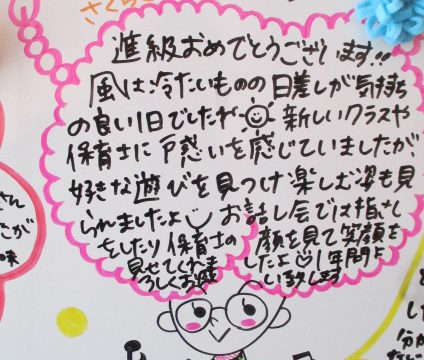 さくら
進級おめでとうございます!!
風は冷たいものの日差しが気持ち
の良い1日でしたね 新しいクラスや
保育士に戸惑いを感じていましたが、
好きな遊びを見つけ楽しむ姿も見
られましたよ お話し会では指さし
をしたり保育士の顔を見て笑顔を
見せてくれましたよ 1年間よ
ろしくお願い致します
さん
こが
味